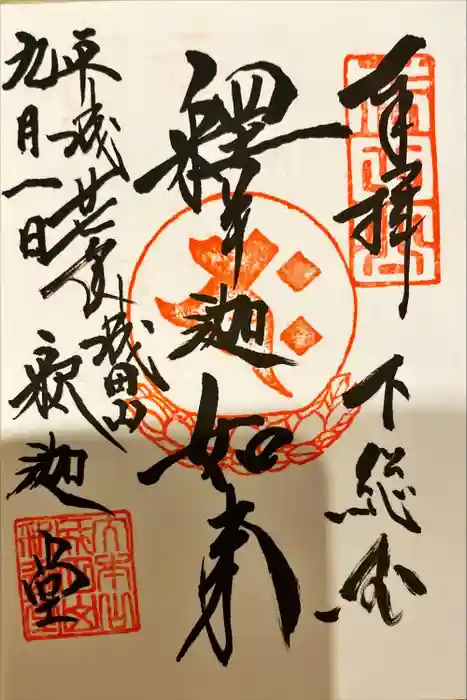 奉拝
下総国
釋迦如来
成田山
釈迦堂
平成廿七年
九月一日